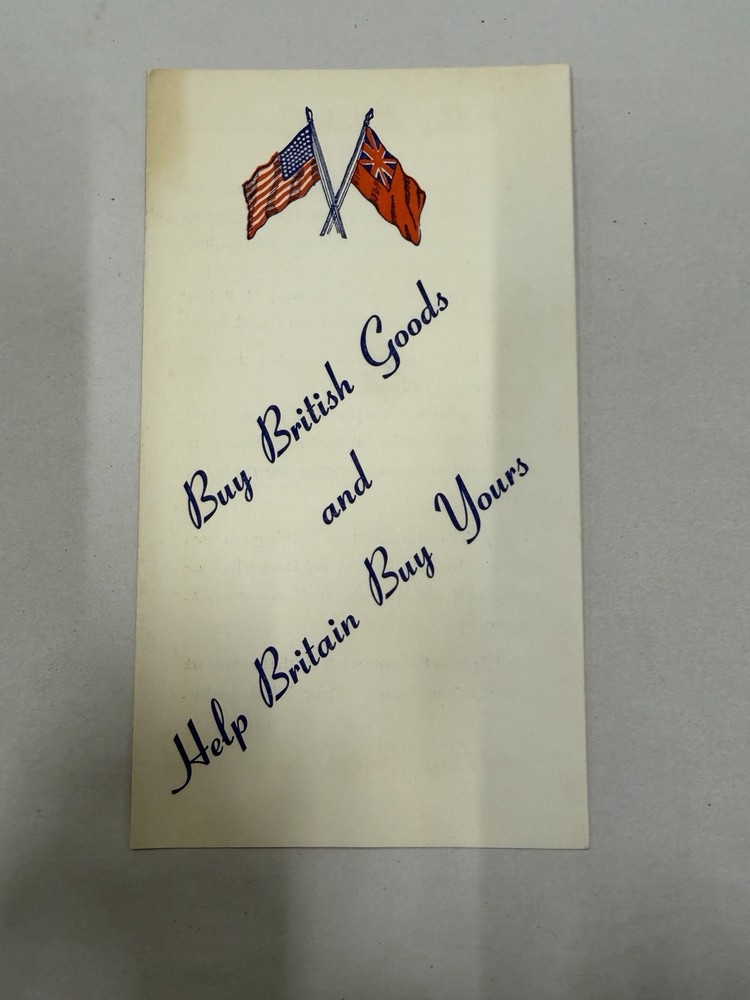 Buy British Goods
and
Help Britain Buy Yours